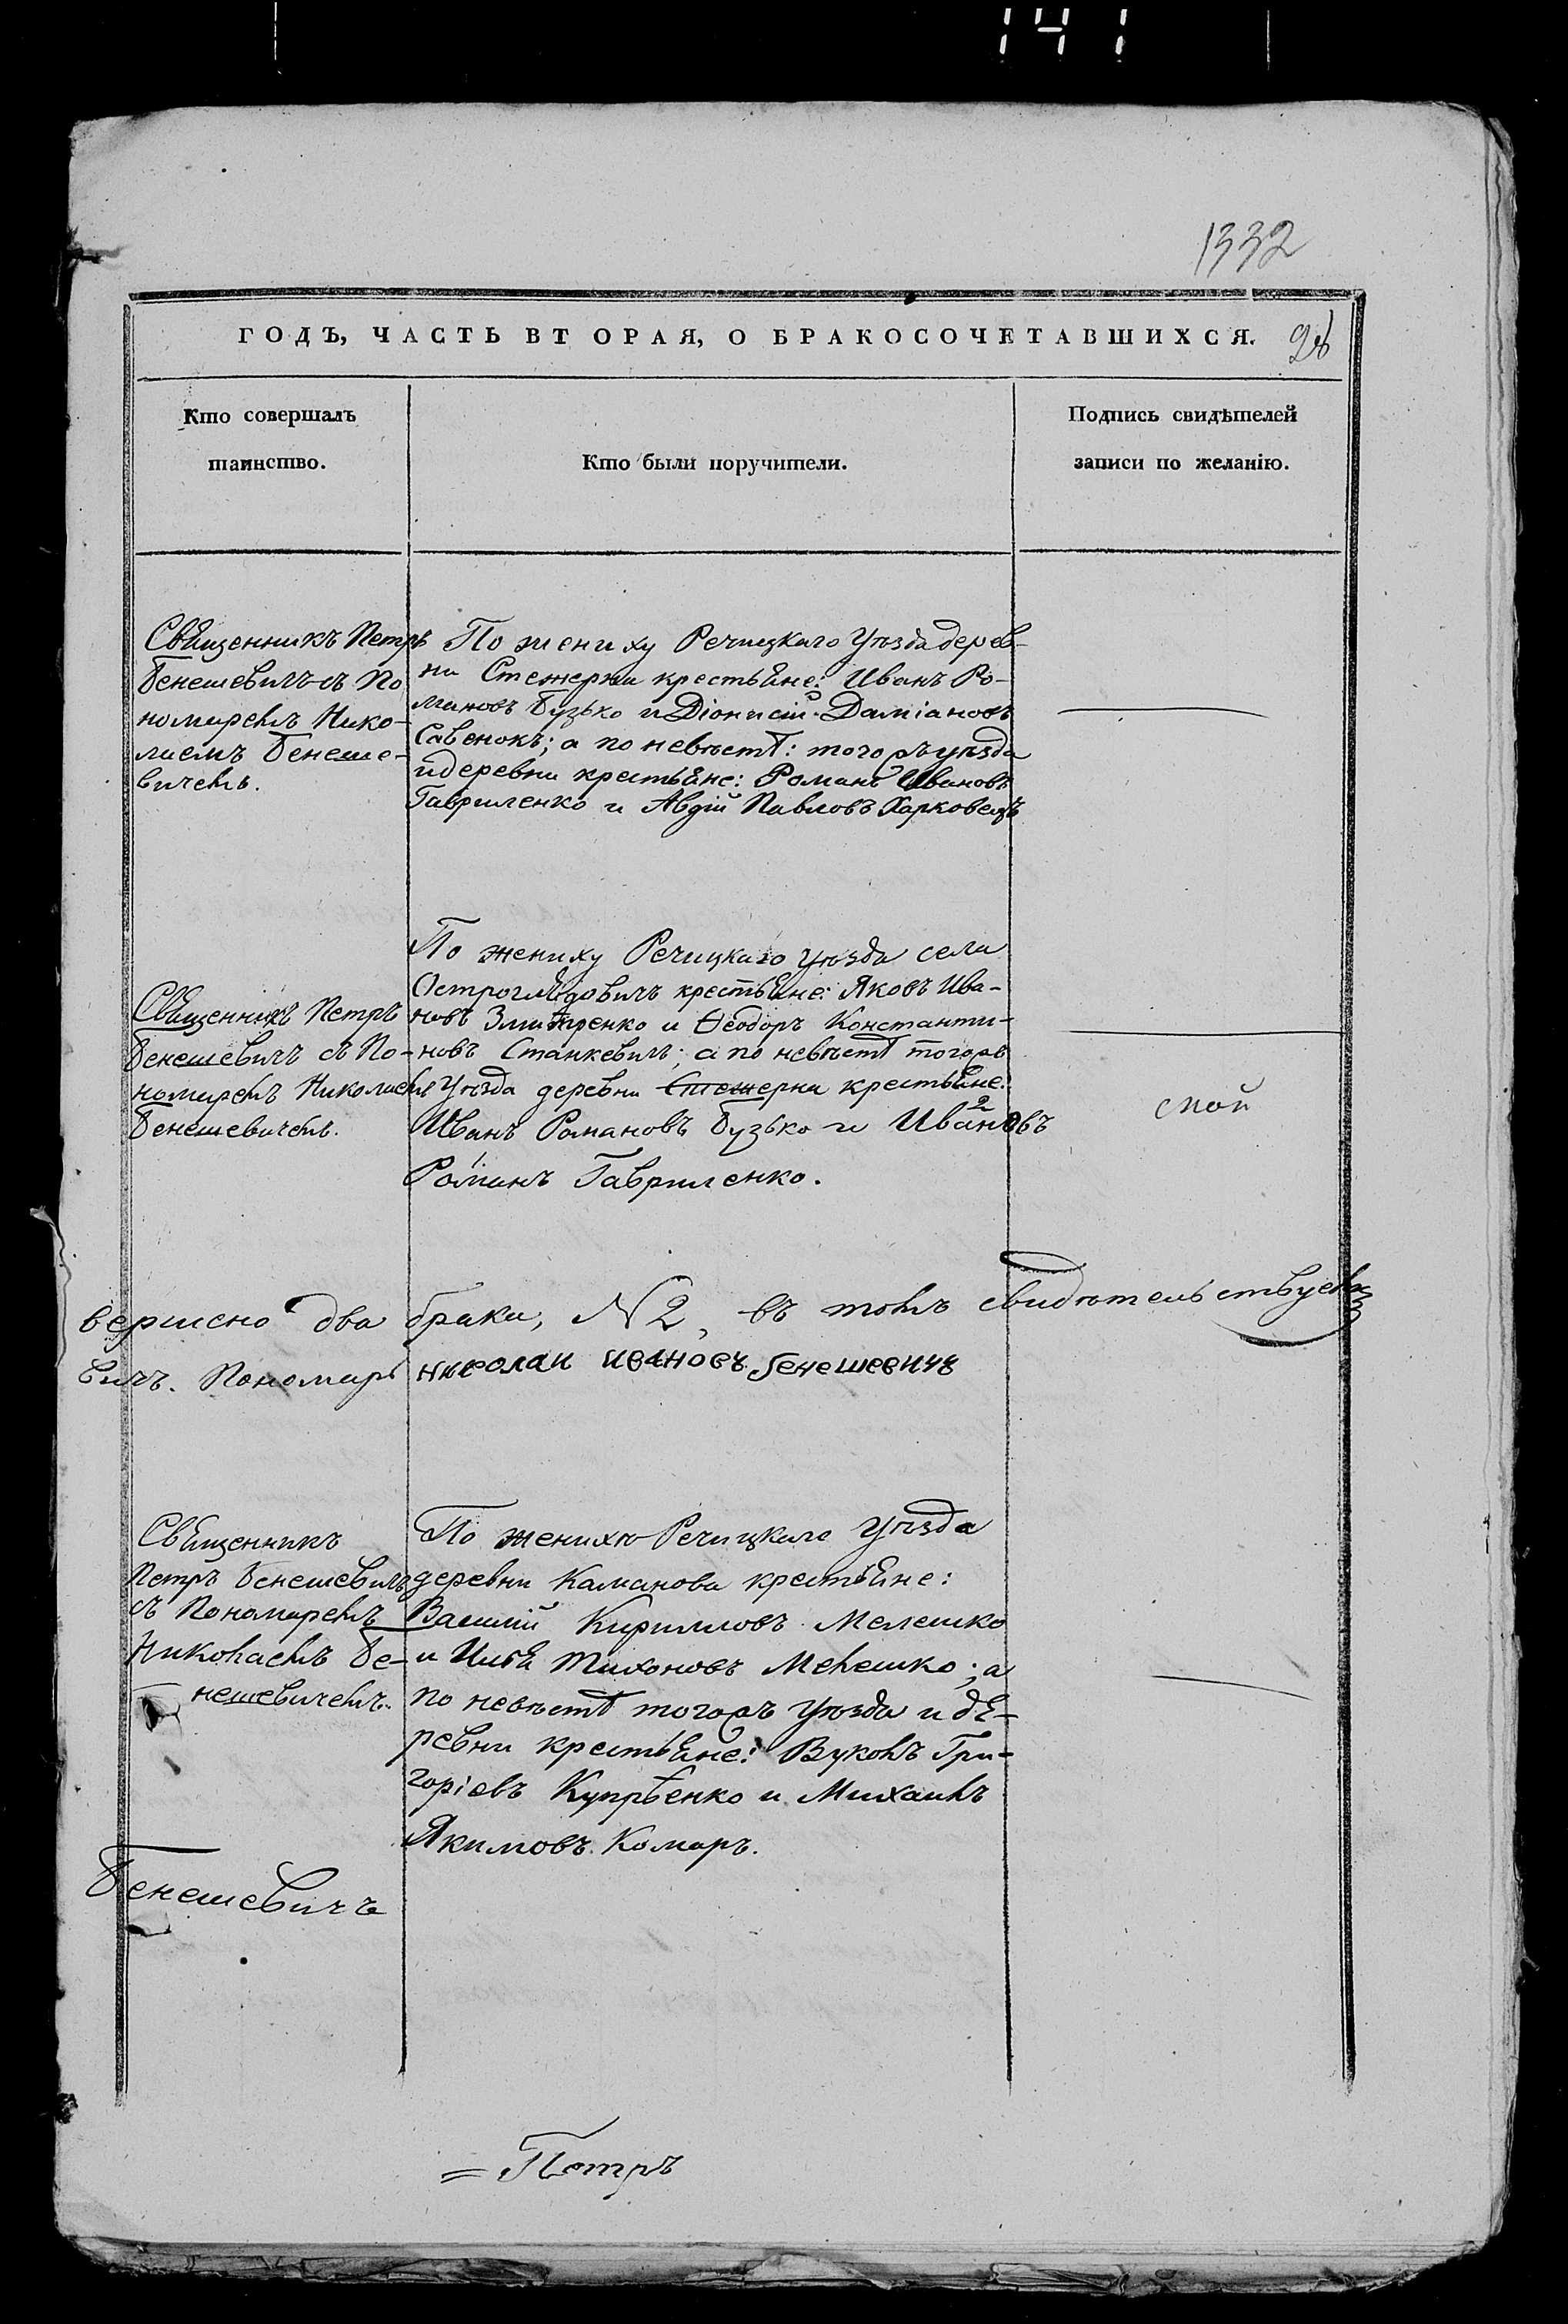 141
1332
ГОДЪ, ЧАСТЬ ВТОРАЯ, О БРАКОСОЧЕТАВШИХСЯ.
Кто совершалъ
таинство.
Кто были поручители.
Подпись свидѣтелей
записи по желанію.
Священникъ Петръ
Бенешевичъ съ По
номаремъ Нико-
лаемъ Бенеше-
вичемъ.
По жениху Речицкаго уѣзда дерев-
ни Стежерни крестьяне: Иванъ Ро-
мановъ Бузько и Діонисій Даміановъ
Савенокъ; а по невѣстѣ: тогожъ уѣзда
и деревни крестьяне: Романъ Ивановъ
Гавриленко и Авдій Павловъ Харковецъ
Священникъ Петръ
Бенешевичъ съ По-
номаремъ Николаемъ
Бенешевичемъ.
По жениху Речицкаго уѣзда села
Остроглядовичъ крестьяне: Яковъ Ива-
новъ Змитренко и Ѳеодоръ Константи-
новъ Станкевичъ; а по невѣстѣ тогожъ
уѣзда деревни Стежерни крестьяне:
Иванъ Романовъ Бузько и Ивановъ
Романъ Гавриленко.
ской
вершено два брака, N 2, въ томъ свидѣтельствуемъ
вичъ. Пономарь николаи ивановъ бенешевичъ
Священникъ
Петръ Бенешевичъ
съ Пономаремъ
Николаемъ Бе-
нешевичемъ.
По женихѣ Речицкаго уѣзда
деревни Каманова крестьяне:
Василій Кирилловъ Мелешко
и Илья Тихоновъ Мелешко; а
по невѣстѣ тогожъ уѣзда и де-
ревни крестьяне: Вуколъ Гри-
горіевъ Купрѣенко и Михаилъ
Якимовъ Комаръ.
Бенешевичъ
= Петръ